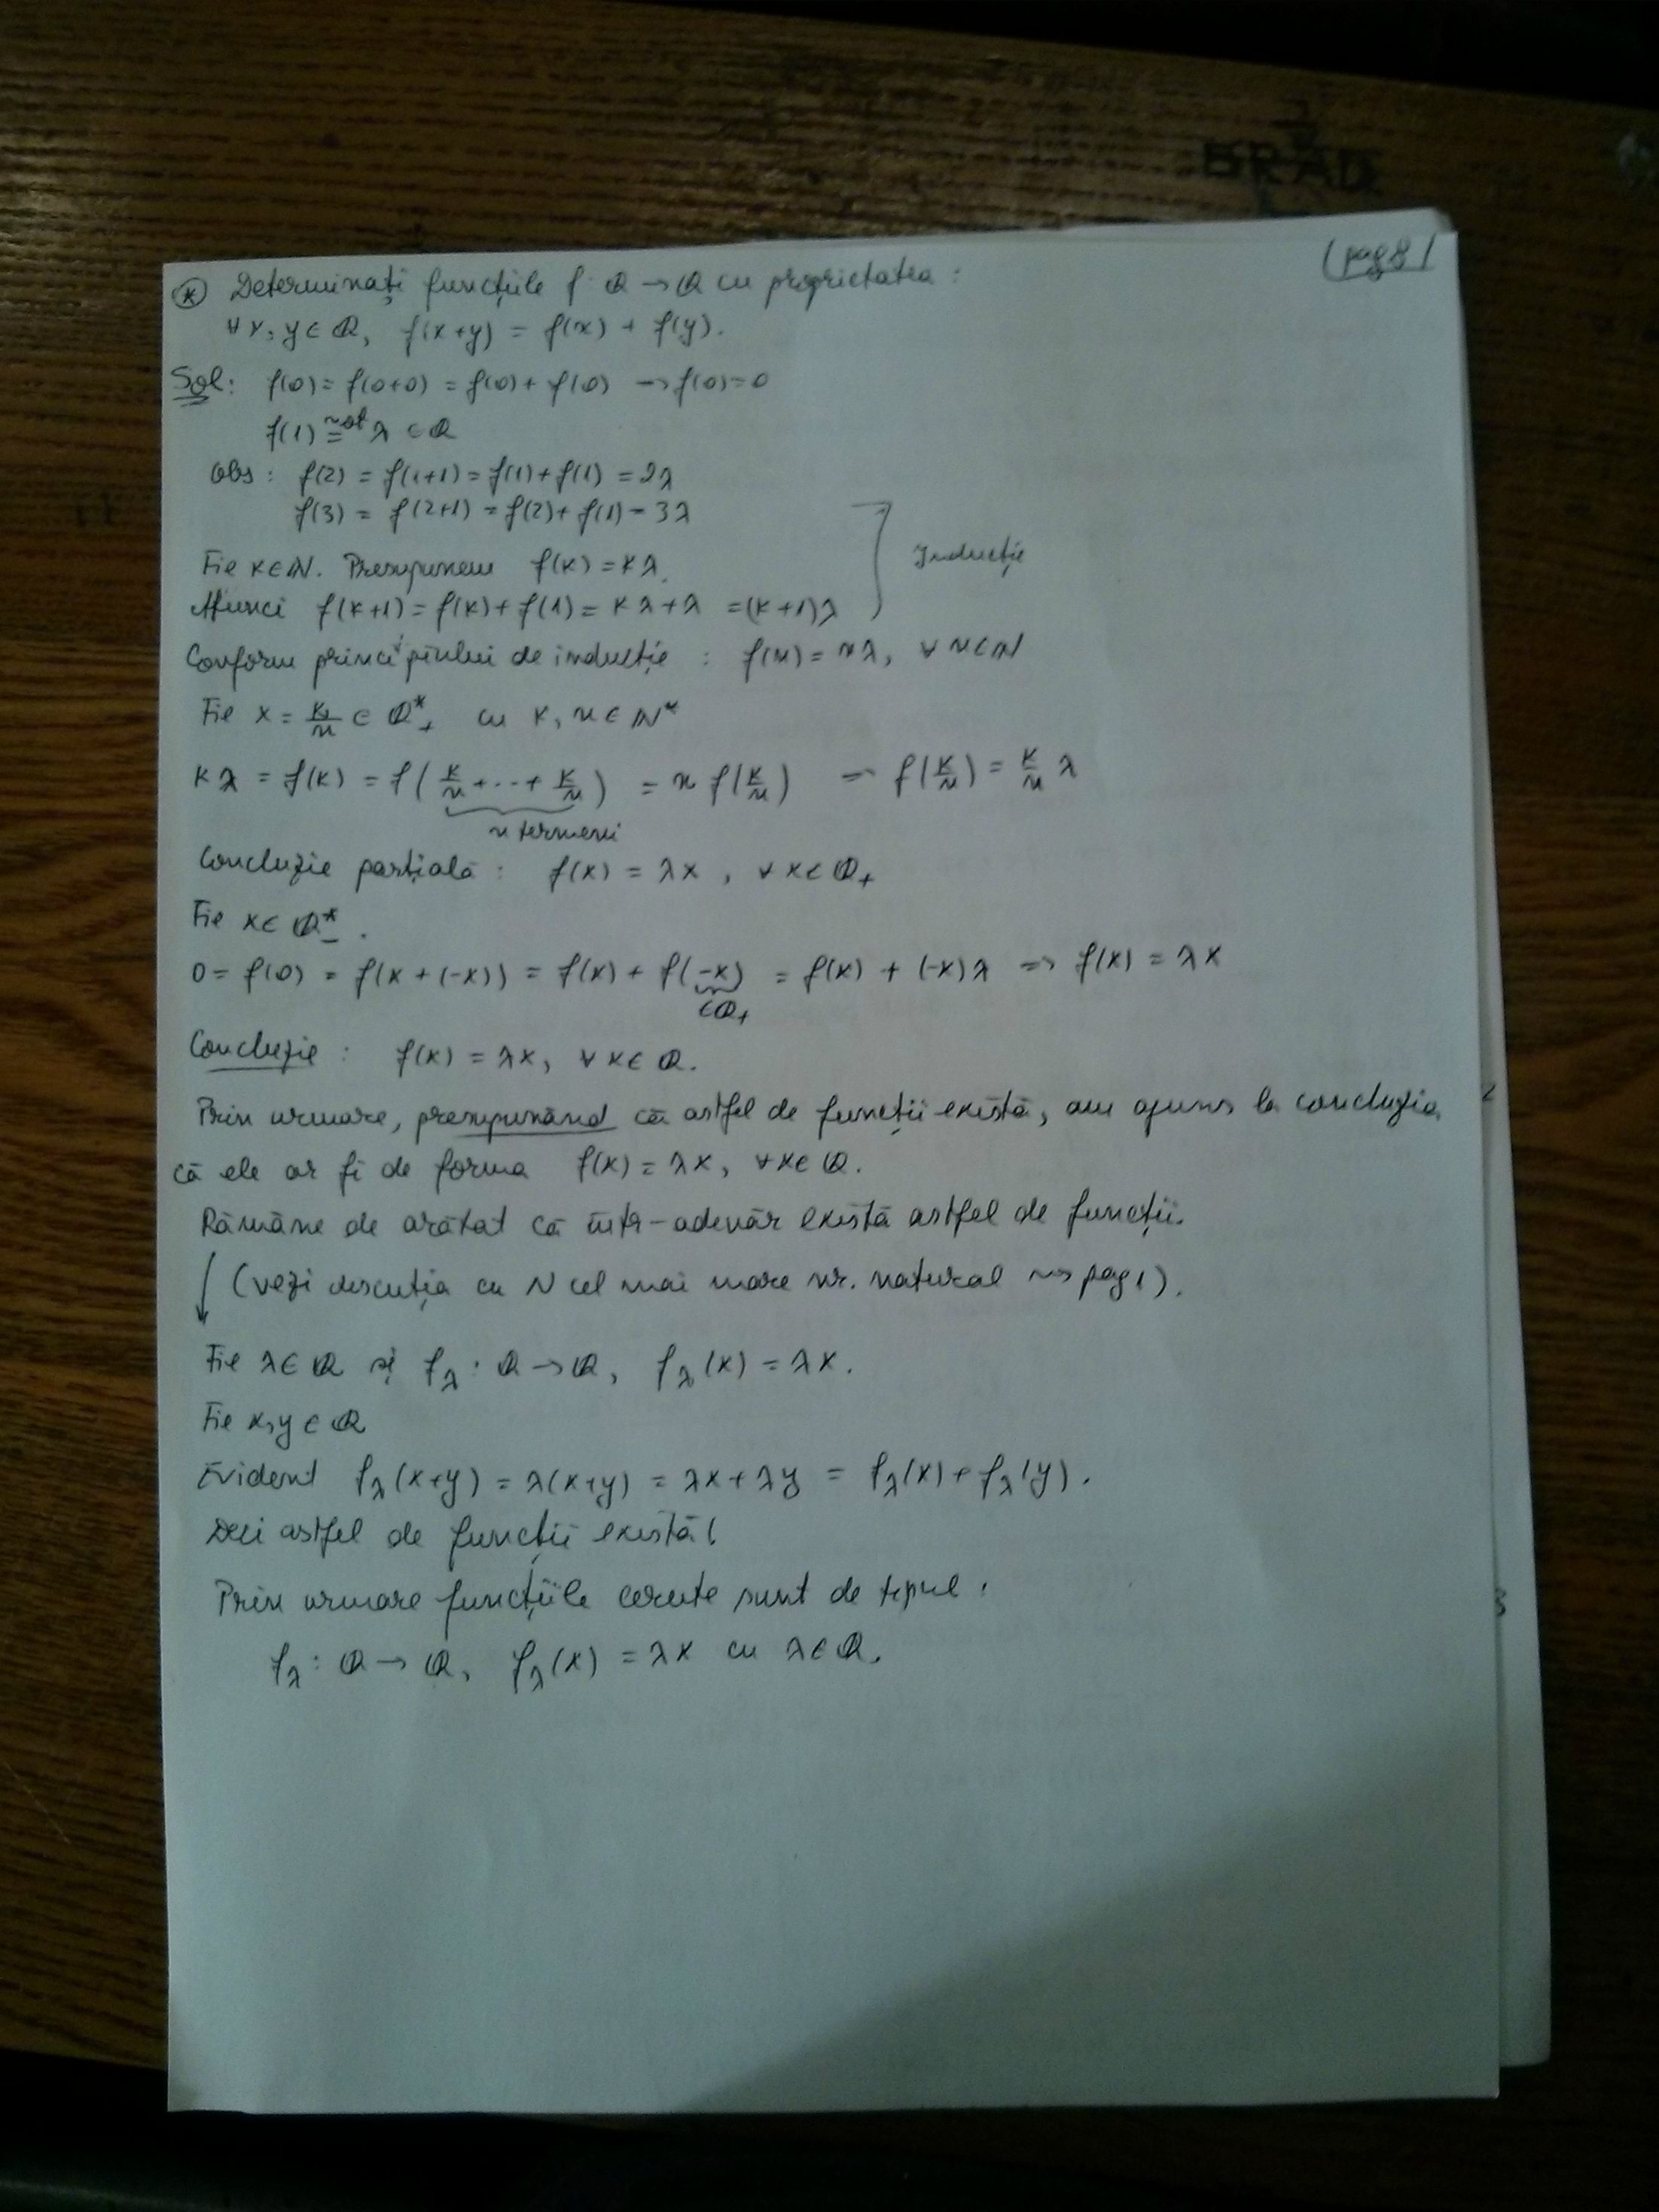 (pag 8)
(*) Determinați funcțiile f: ℚ → ℚ cu proprietatea:
∀ x, y ∈ ℚ, f(x+y) = f(x) + f(y).
Sol: f(0) = f(0+0) = f(0) + f(0) → f(0) = 0
f(1) =not λ ∈ ℚ
Obs: f(2) = f(1+1) = f(1) + f(1) = 2λ
f(3) = f(2+1) = f(2) + f(1) = 3λ
Fie k ∈ ℕ. Presupunem f(k) = kλ.
Inducție
Atunci f(k+1) = f(k) + f(1) = kλ + λ = (k+1)λ
Conform principiului de inducție : f(n) = nλ, ∀ n ∈ ℕ
Fie x = k/n ∈ ℚ*₊ cu k, n ∈ ℕ*
kλ = f(k) = f(k/n + ... + k/n) = n f(k/n) ⇒ f(k/n) = k/n λ
n termeni
Concluzie parțială : f(x) = λx, ∀ x ∈ ℚ₊
Fie x ∈ ℚ*₋.
0 = f(0) = f(x + (-x)) = f(x) + f(-x) = f(x) + (-x)λ ⇒ f(x) = λx
∈ℚ₊
Concluzie : f(x) = λx, ∀ x ∈ ℚ.
Prin urmare, presupunând că astfel de funcții există, am ajuns la concluzia
că ele ar fi de forma f(x) = λx, ∀ x ∈ ℚ.
Rămâne de arătat că într-adevăr există astfel de funcții.
↓ (vezi discuția cu N cel mai mare nr. natural ⇝ pag 1).
Fie λ ∈ ℚ și f_λ : ℚ → ℚ, f_λ(x) = λx.
Fie x, y ∈ ℚ
Evident f_λ(x+y) = λ(x+y) = λx + λy = f_λ(x) + f_λ(y).
Deci astfel de funcții există!
Prin urmare funcțiile cerute sunt de tipul :
f_λ : ℚ → ℚ, f_λ(x) = λx cu λ ∈ ℚ.